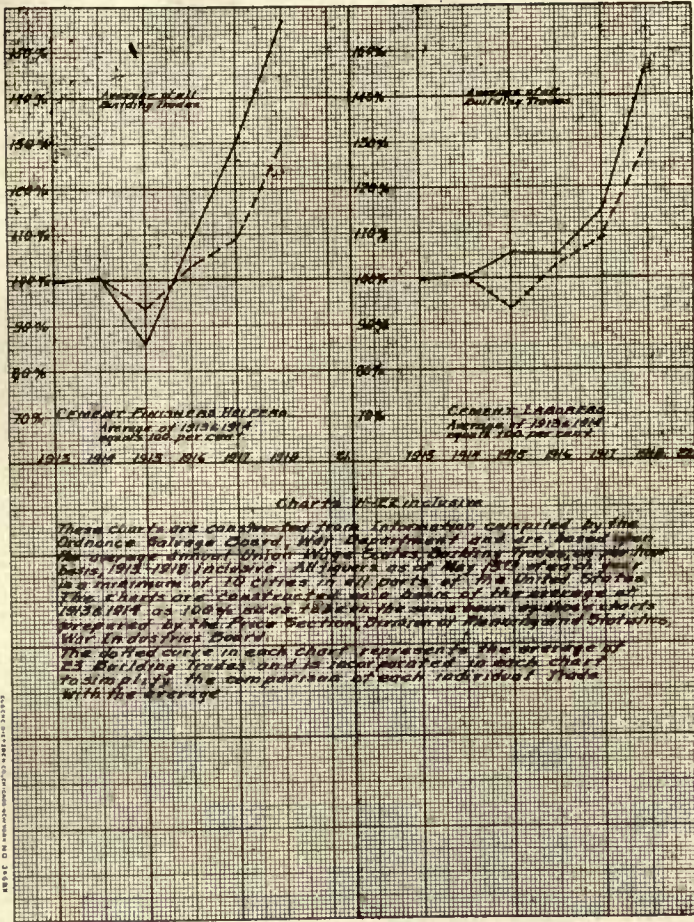 150%
140%
130%
120%
110%
100%
90%
80%
70%
Average of all
Building Trades
CEMENT FINISHERS HELPERS
Average of 1913 & 1914
equals 100 per cent
1913 1914 1915 1916 1917 1918 21
150%
140%
130%
120%
110%
100%
90%
80%
70%
Average of all
Building Trades
CEMENT LABORERS
Average of 1913 & 1914
equals 100 per cent
1913 1914 1915 1916 1917 1918 22
Charts 1-22 inclusive
These charts are constructed from Information compiled by the
Ordnance Salvage Board, War Department and are based upon
the average annual Union Wage Scales, Building Trades, on per hour
basis, 1913-1918 inclusive. All figures as of May 15th of each year
in a minimum of 10 cities in all parts of the United States
The charts are constructed on a basis of the average of
1913 & 1914 as 100% taken the same basis charts
prepared by the Price Section, Division of Planning and Statistics,
War Industries Board.
The dotted curve in each chart represents the average of
23 Building Trades and is incorporated in each chart
to simplify the comparison of each individual Trade
with the average